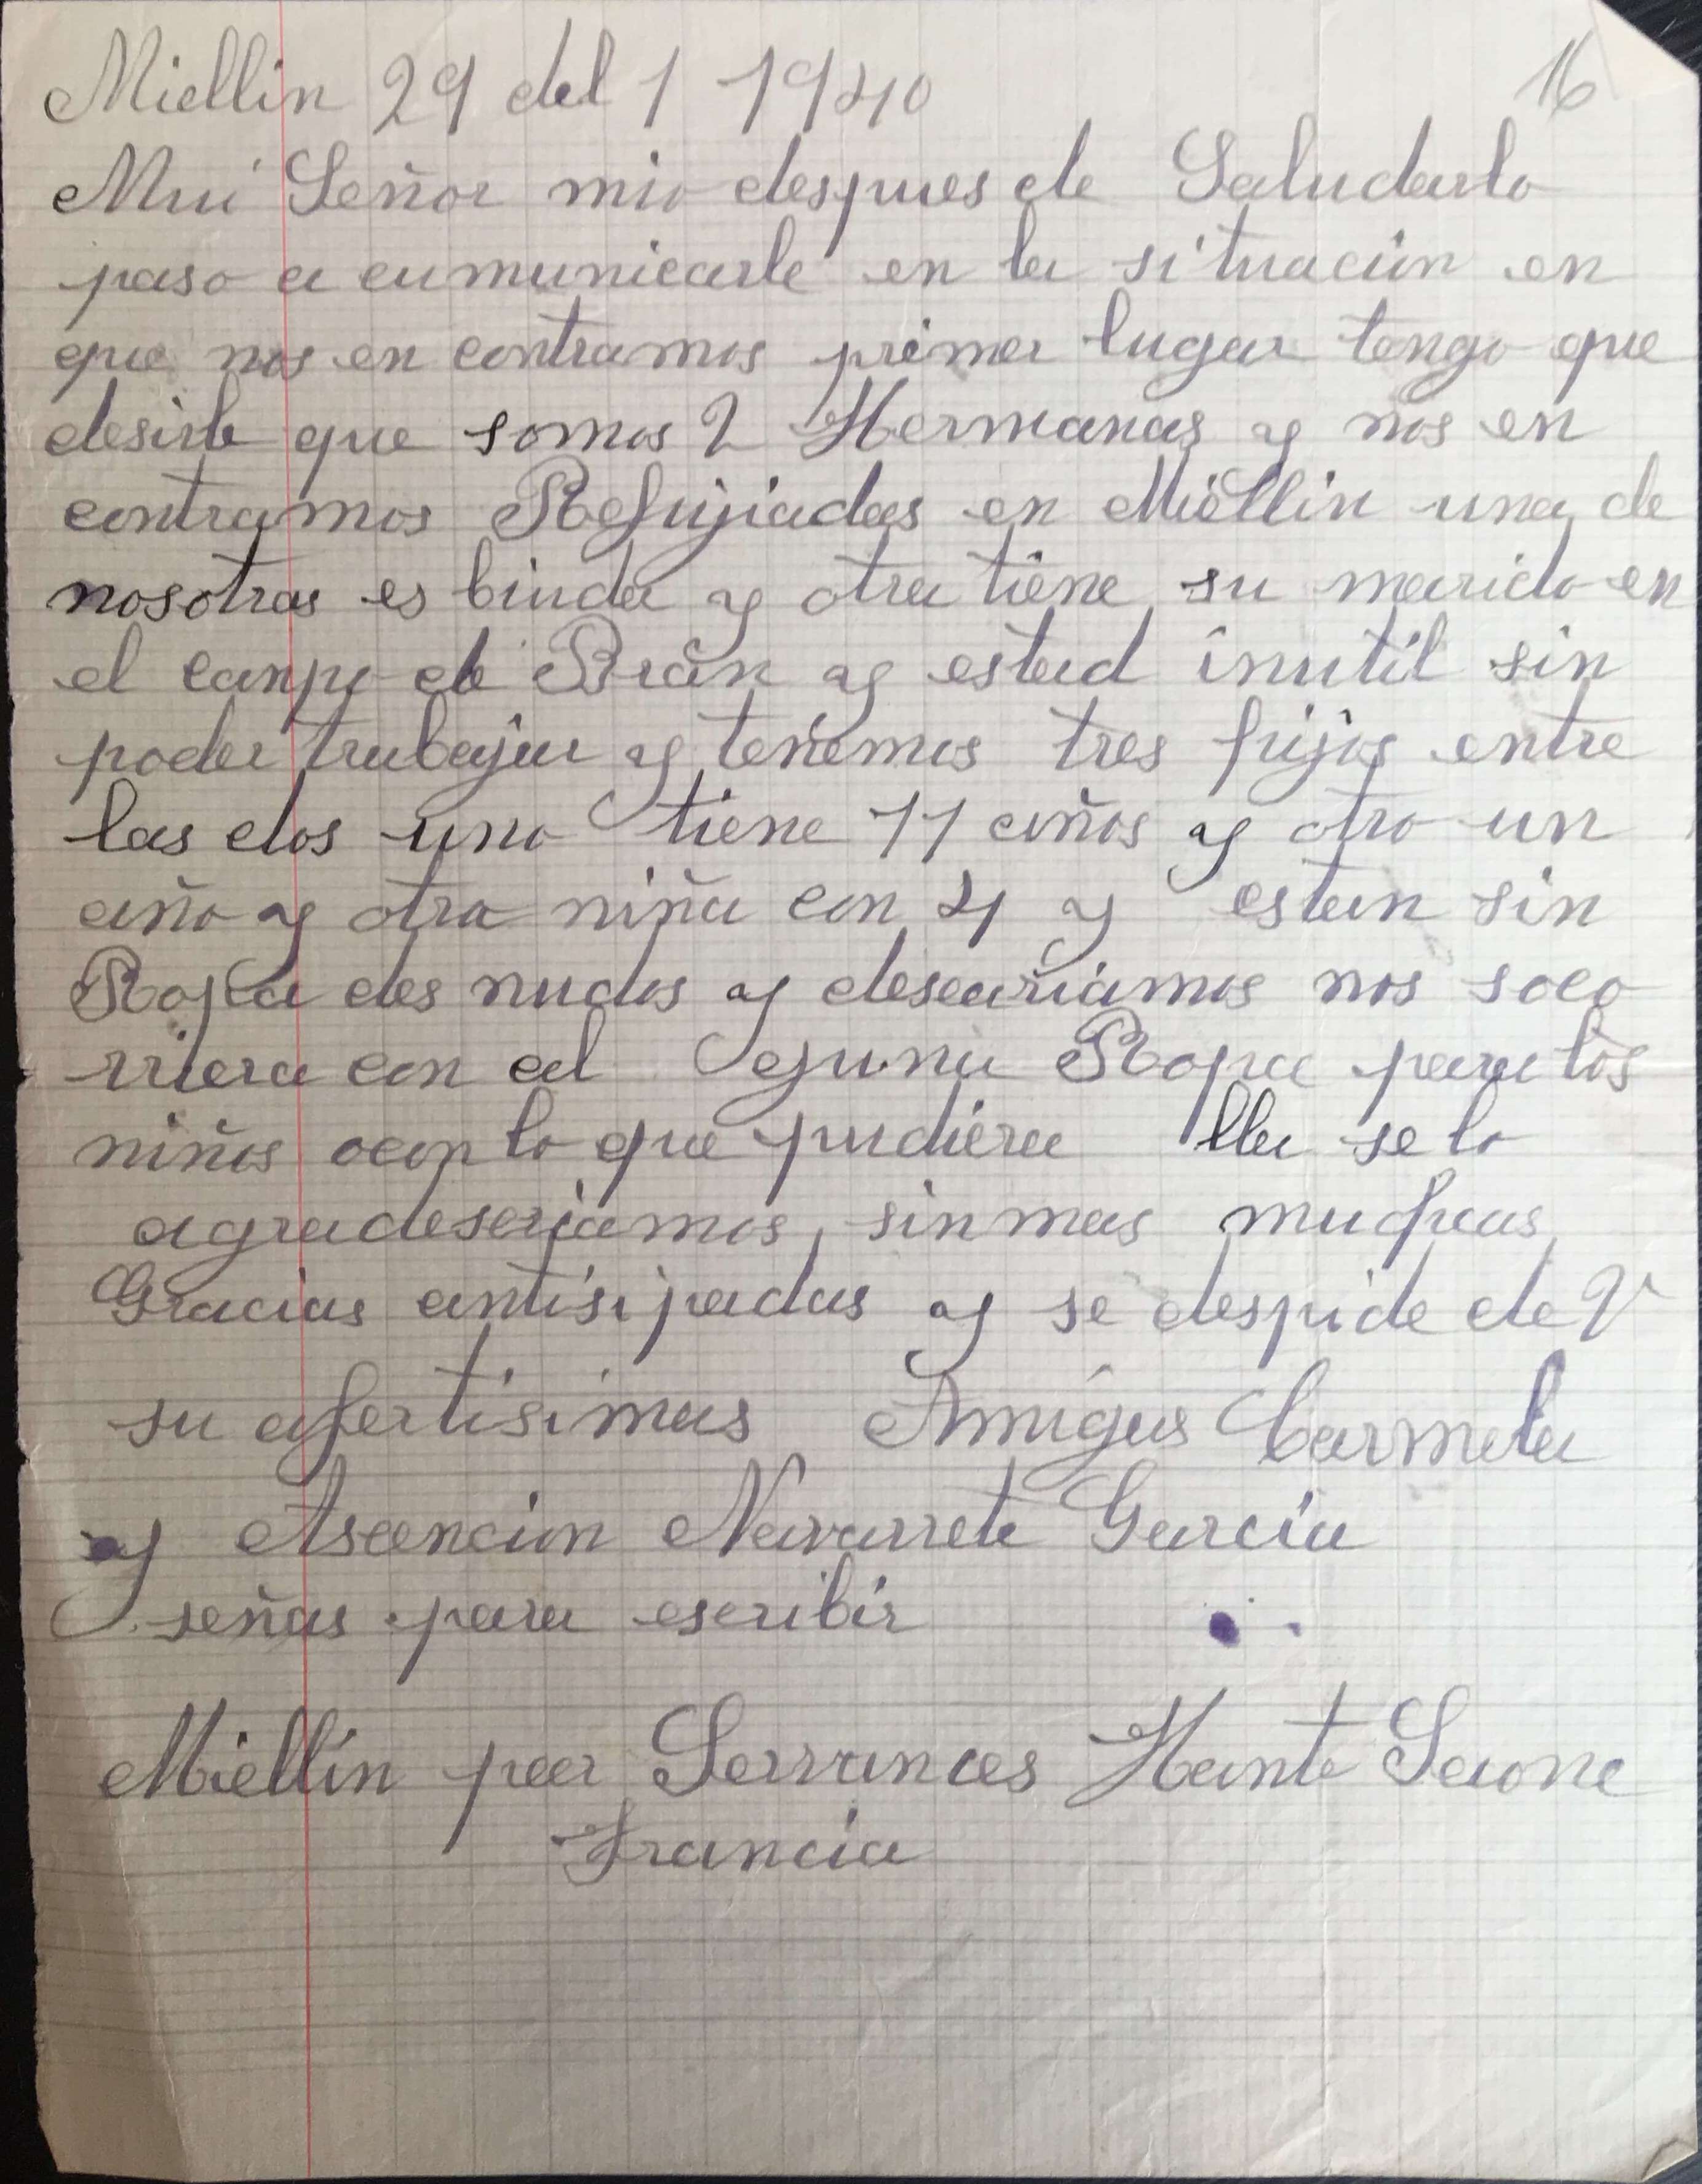 16
Miellin 29 del 1 1940
Mui Señor mio despues de Saludarlo
paso a cumunicarle en la situacion en
que nos en contramos primer lugar tengo que
desirle que somos 2 Hermanas y nos en
contramos Refujiadas en Miellin una de
nosotras es biuda y otra tiene su marido en
el canpo de Bran y estad inutil sin
poder trabajar y tenemos tres hijos entre
las dos uno tiene 11 años y otro un
año y otra niña con 4 y estan sin
Ropa des nudos y deseariamos nos soco
rriera con al guna Ropa para los
niños ocon lo que pudiera lla se lo
agradeseriamos sin mas muchas
Gracias antisipadas y se despide de V
su afertisimas Amigas Carmela
y Asencion Navarrete Garcia
señas para escribir
Miellin par Servances Hante Saone
Francia